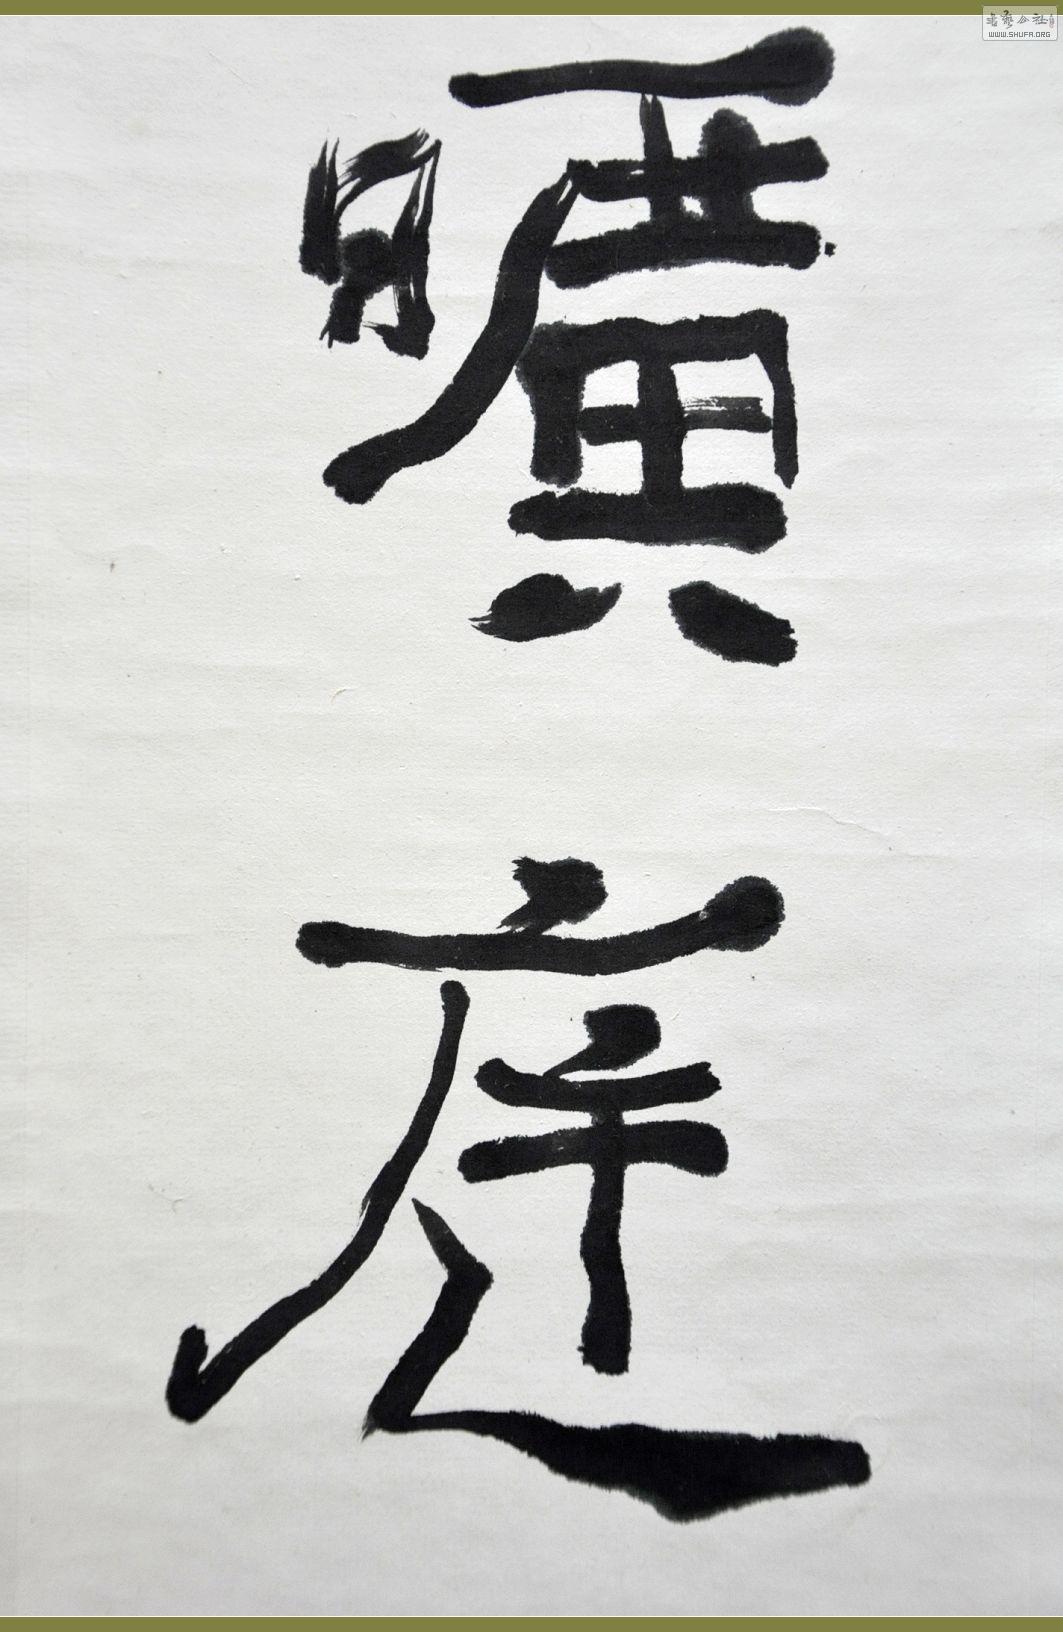 曠庭
書藝公社
WWW.SHUFA.ORG